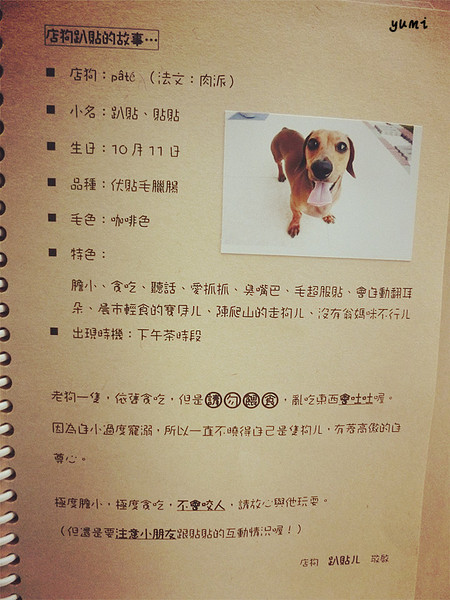 yumi
店狗趴貼的故事…
■ 店狗：pâté （法文：肉派）
■ 小名：趴貼、貼貼
■ 生日：10月11日
■ 品種：伏貼毛臘腸
■ 毛色：咖啡色
■ 特色：
膽小、貪吃、聽話、愛抓抓、臭嘴巴、毛超服貼、會自動翻耳
朵、晨市輕食的寶貝ㄦ、陳爬山的走狗ㄦ、沒有翁媽咪不行ㄦ
■ 出現時機：下午茶時段
老狗一隻，依舊貪吃，但是請勿餵食，亂吃東西會吐吐喔。
因為自小過度寵溺，所以一直不曉得自己是隻狗ㄦ，有著高傲的自
尊心。
極度膽小，極度貪吃，不會咬人，請放心與他玩耍。
（但還是要注意小朋友跟貼貼的互動情況喔！）
店狗 趴貼ㄦ 敬啟